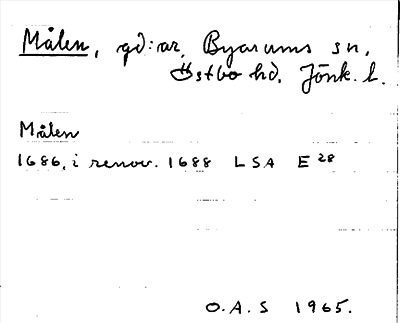 Målen, gd:ar, Byarums sn,
Östbo hd, Jönk. l.
Målen
1686, i renov. 1688 LSA E 28
O.A.S 1965.